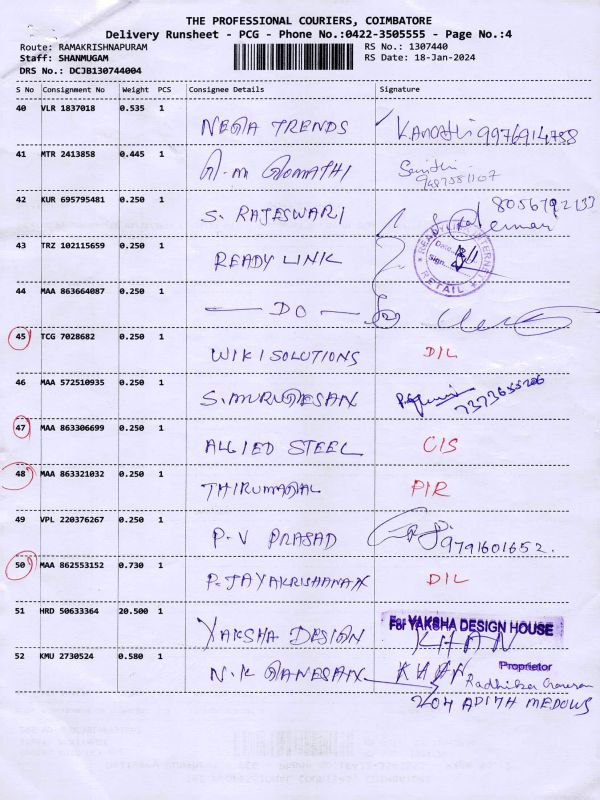 THE PROFESSIONAL COURIERS, COIMBATORE
Delivery Runsheet - PCG - Phone No.:0422-3505555 - Page No.:4
Route: RAMAKRISHNAPURAM RS No.: 1307440
Staff: SHANMUGAM RS Date: 18-Jan-2024
DRS No.: DCJB130744004
S No Consignment No Weight PCS Consignee Details Signature
40 VLR 1837018 0.535 1
NEGA TRENDS 9976914788
41 MTR 2413858 0.445 1
GOMATHI
42 KUR 695795481 0.250 1 8056792133
S. RAJESWARI
43 TRZ 102115659 0.250 1
READY LINK
RETAIL
44 MAA 863664087 0.250 1
— DO —
45 TCG 7028682 0.250 1
WIKI SOLUTIONS D/L
46 MAA 572510935 0.250 1
S. MURUGESAN
47 MAA 863306699 0.250 1
ALLIED STEEL C/S
48 MAA 863321032 0.250 1
THIRUMAGAL P/R
49 VPL 220376267 0.250 1
P. V PRASAD 9791601652.
50 MAA 862553152 0.730 1
P. JAYAKRISHANAN D/L
51 HRD 50633364 20.500 1 For YAKSHA DESIGN HOUSE
YAKSHA DESIGN KHAN
52 KMU 2730524 0.580 1
N. K GANESAN KHAN Proprietor
Radhika
204 ADITH MEDOWS